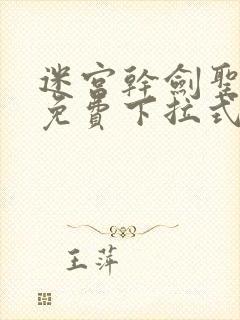 迷宫幹劍聖
免費下拉式
王萍